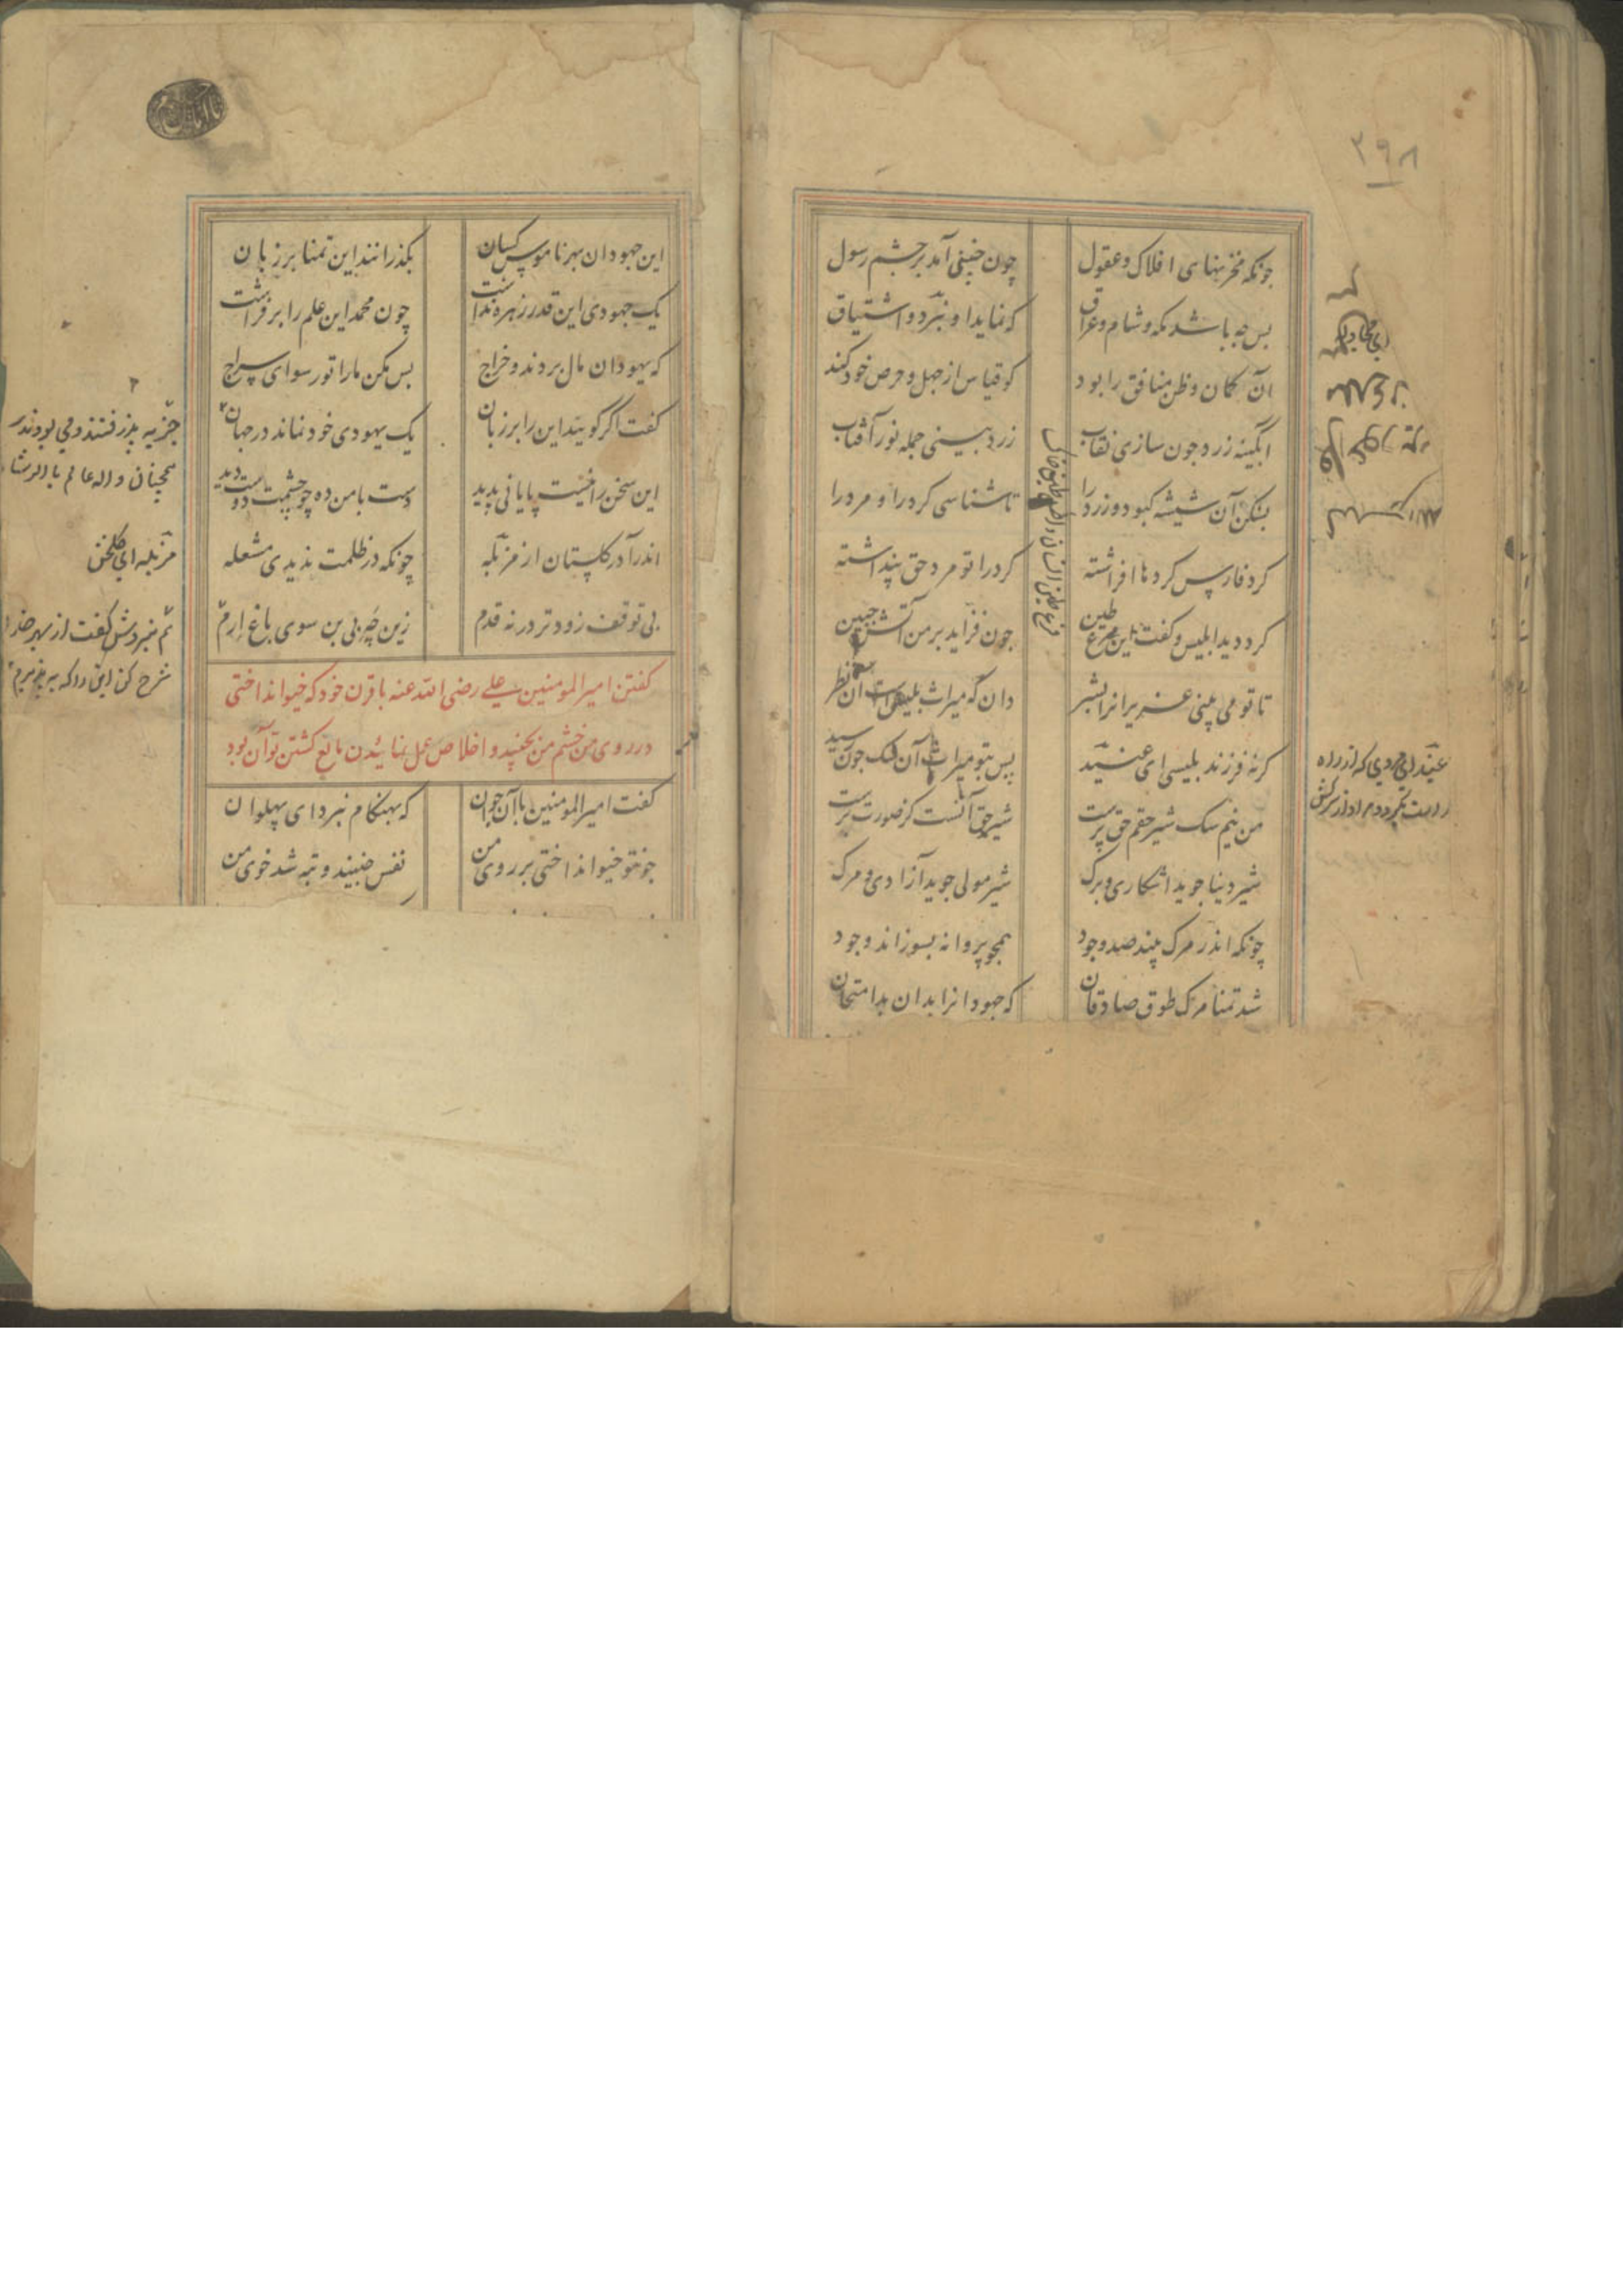 ۳۹۸
چونکه مخزنهای افلاک و عقول
چون خسی آمد بر چشم رسول
پس چه باشد مکه و شام و عراق
که نماید او نبرد و اشتیاق
آن گمان و ظن منافق را بود
کو قیاس از جهل و حرص خود کند
ابگینه زرد چون سازی نقاب
زرد بینی جمله نور آفتاب
بشکن آن شیشه کبود و زرد را
تا شناسی کرد را و مرد را
کرد فارس کردها افراشته
کرد را تو مرد حق پنداشته
کرد دید ابلیس و گفت این فرع طین
چون فزاید بر من آتش جبین
تا تو می بینی عزیزانرا بشر
دان که میراث بلیس است آن نظر
کر نه فرزند بلیسی ای عنید
پس بتو میراث آن سک چون رسید
من نیم سک شیر حقم حق پرست
شیر حق آنست کز صورت برست
شیر دنیا جوید اشکاری و برک
شیر مولی جوید آزادی و مرک
چونکه اندر مرک بیند صد وجود
همچو پروانه بسوزاند وجود
شد تمنا مرک طوق صادقان
که جهودانرا بدان بد امتحان
عنید ای مردی که از راه
راست بگردد مراد از سرکش
این جهودان بهر ناموس کسان
بگذرانند این تمنا بر زبان
یک جهودی این قدر زهره نداشت
چون محمد این علم را بر فراشت
که یهودان مال بردند و خراج
بس مکن ما را تو رسوا ای سراج
گفت اگر گویید این را بر زبان
یک یهودی خود نماند در جهان
این سخن را نیست پایانی پدید
دست با من ده چو چشمت دوست دید
اندرآ در گلستان از مزبله
چونکه در ظلمت بدیدی مشعله
بی توقف زودتر در نه قدم
زین چه بی بن سوی باغ ارم
گفتن امیر المومنین علی رضی الله عنه با قرن خود که خیو انداختی
در روی من خشم من بجنبید و اخلاص عمل نماند مانع کشتن تو آن بود
گفت امیر المومنین با آن جوان
که بهنگام نبرد ای پهلوان
چون تو خیو انداختی بر روی من
نفس جنبید و تبه شد خوی من
جزیه پذرفتند و می بودند
همچنان و الله عالم بالرشاد
مزبله ای گلخن